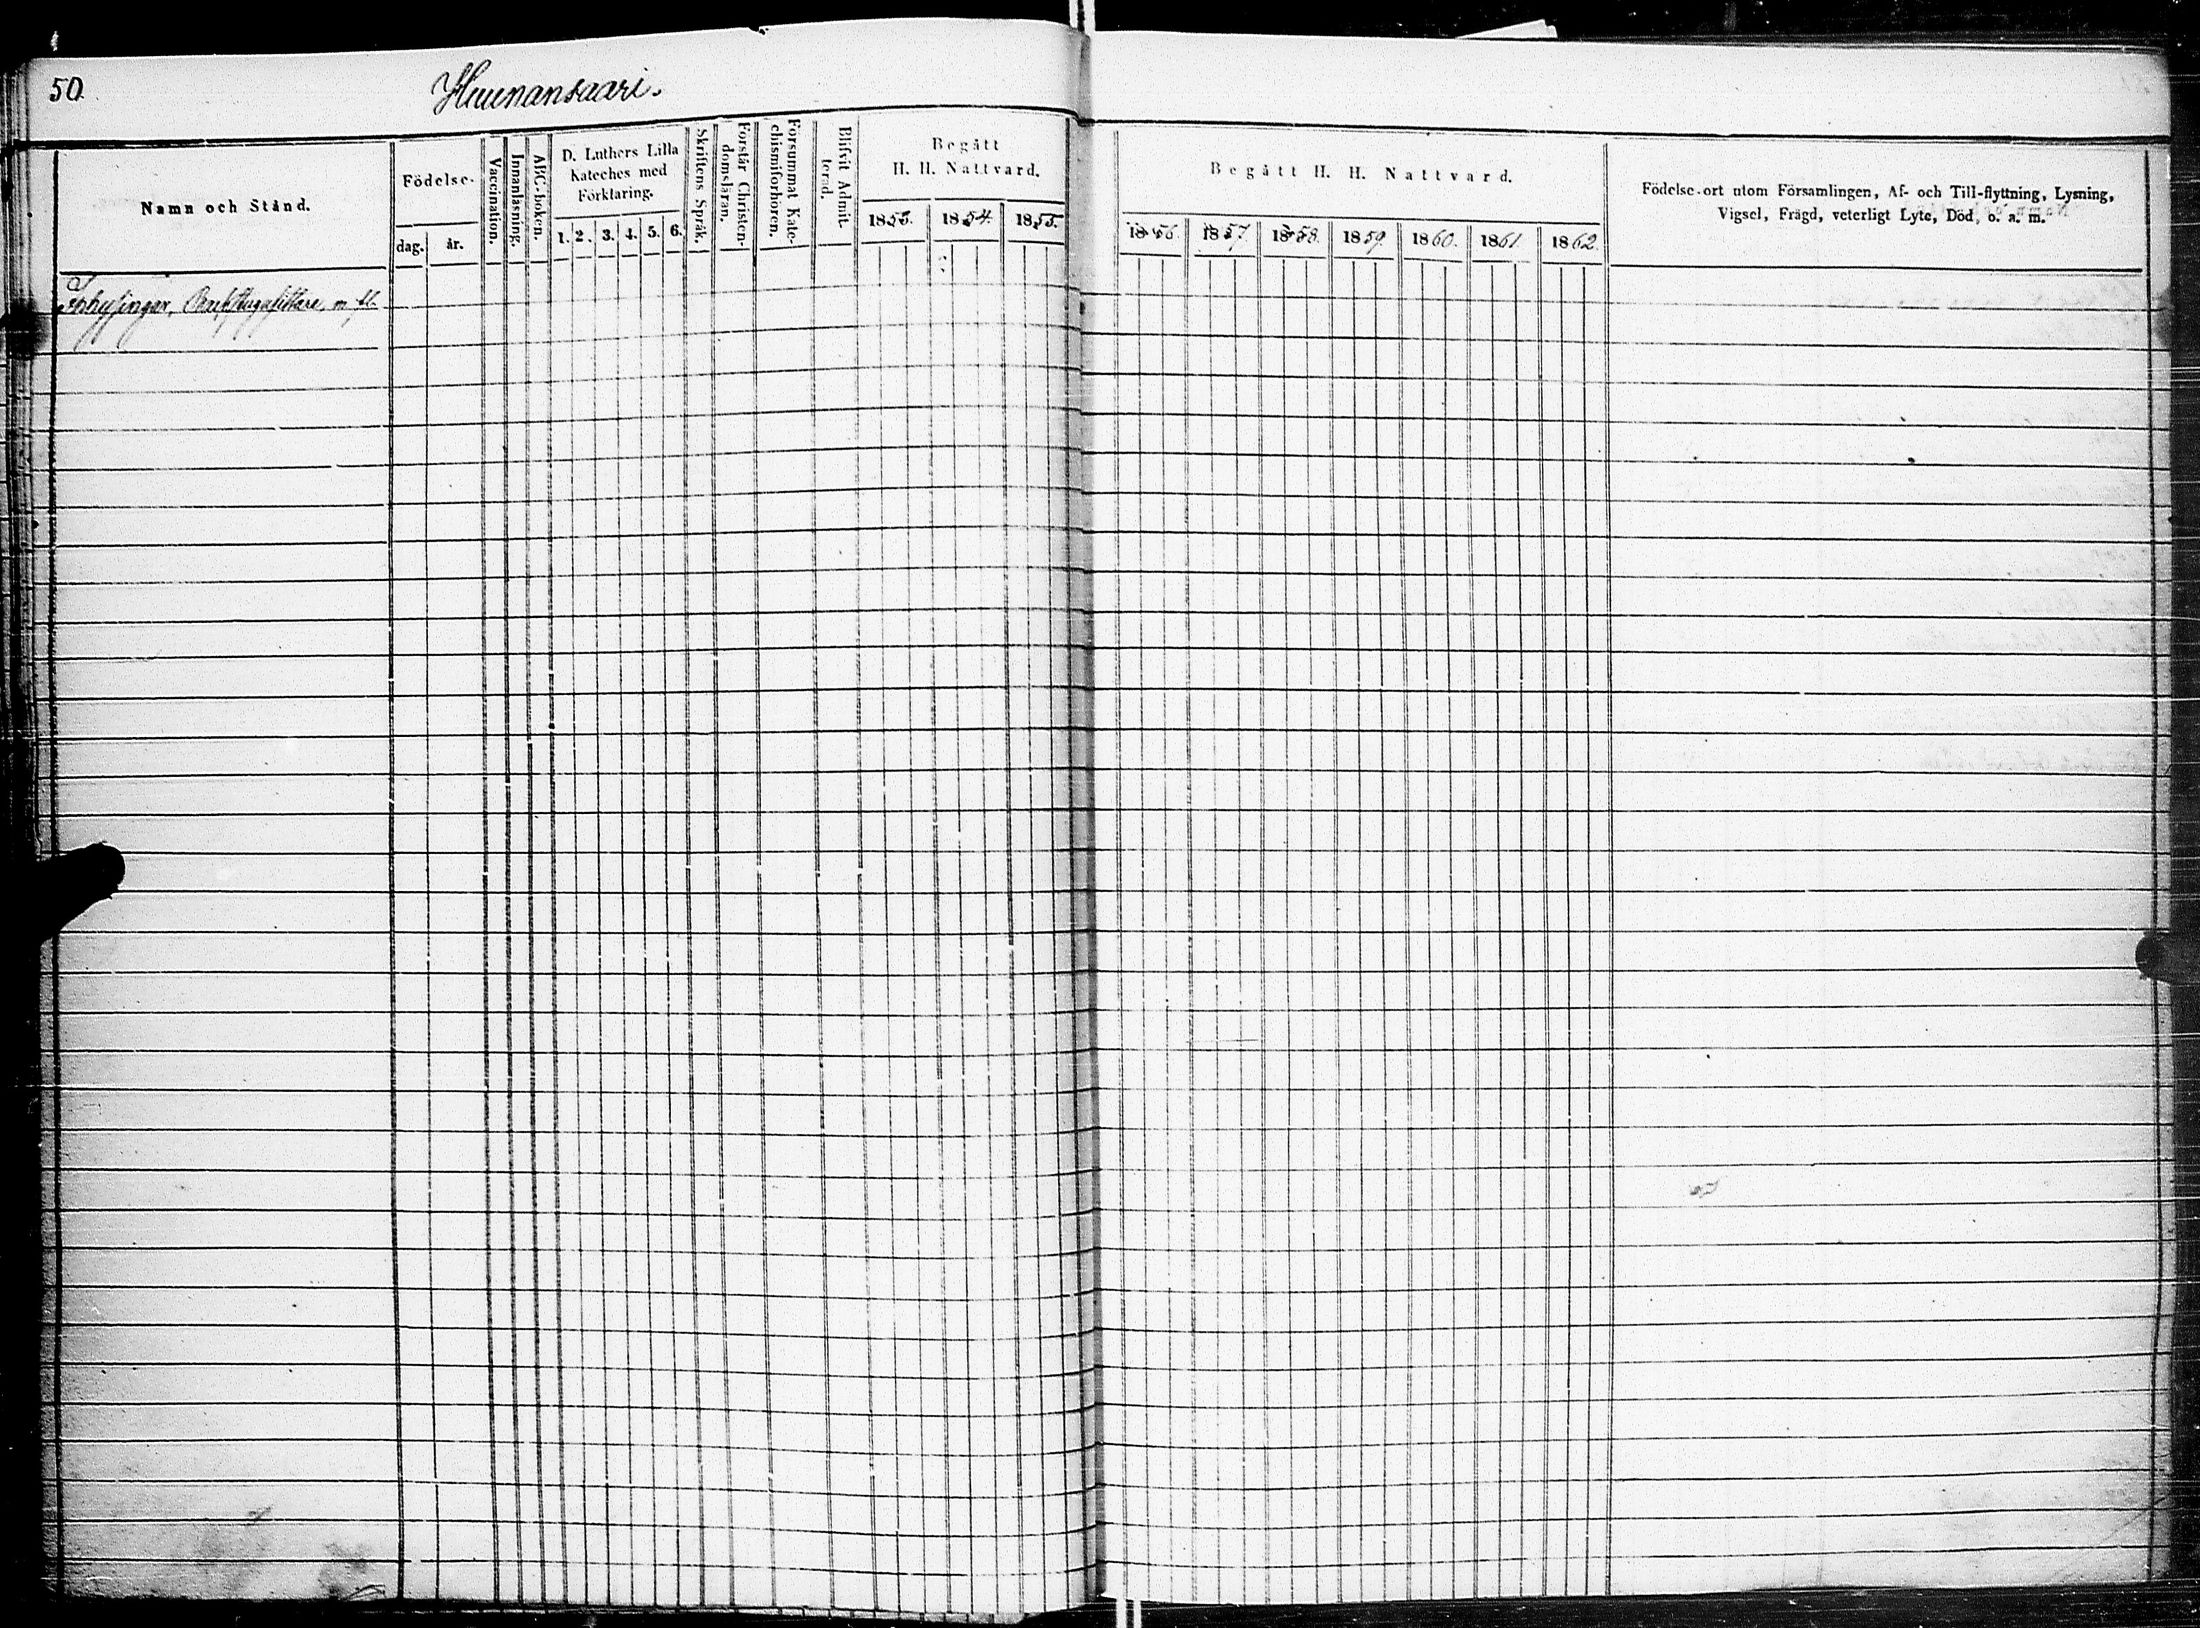 50.
Huunansaari.
Namn och Stånd.
Födelse-
dag.
år.
Vaccination.
Innanläsning.
ABC-boken.
D. Luthers Lilla
Kateches med
Förklaring.
1. 2. 3. 4. 5. 6.
Skriftens Språk.
Förstår Christen-
domsläran.
Försummat Kate-
chismiförhören.
Blifvit Admit-
terad.
Begått
H. H. Nattvard.
1853. 1854. 1855.
Begått H. H. Nattvard.
1856. 1857. 1858. 1859. 1860. 1861. 1862.
Födelse-ort utom Församlingen, Af- och Till-flyttning, Lysning,
Vigsel, Frägd, veterligt Lyte, Död, o. a. m.
Inhysingar, Backstugusittare, m. fl.